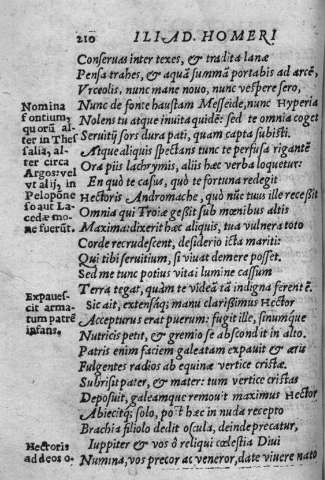 210 ILIAD. HOMERI
Conseruas inter texes, & tradita lanæ
Pensa trahes, & aquã summã portabis ad arcē,
Vrceolis, nunc mane nouo, nunc vespere sero,
Nunc de fonte haustam Messeide, nunc Hyperia
Nolens tu atque inuita quidē: sed te omnia coget
Seruitij sors dura pati, quam capta subisti.
Atque aliquis spectans tunc te perfusa rigantē
Ora piis lachrymis, aliis hæc verba loquetur:
En quò te casus, quò te fortuna redegit
Hectoris Andromache, quò nũc tuus ille recessit
Omnia qui Troiæ gessit sub mœnibus altis
Maxima: dixerit hæc aliquis, tua vulnera toto
Corde recrudescent, desiderio icta mariti:
Qui tibi seruitium, si viuat demere posset.
Sed me tunc potius vitai lumine cassum
Terra tegat, quàm te videã tã indigna ferentē.
Sic ait, extensáq; manu clarissimus Hector
Accepturus erat puerum: fugit ille, sinumque
Nutricis petit, & gremio se abscondit in alto.
Patris enim faciem galeatam expauit & æris
Fulgentes radios ab equinæ vertice cristæ.
Subrisit pater, & mater: tum vertice cristas
Deposuit, galeamque remouit maximus Hector
Abiecitq; solo, post hæc in nuda recepto
Brachia filiolo dedit oscula, deinde precatur,
Iuppiter & vos ô reliqui cœlestia Diui
Numina, vos precor ac veneror, date viuere nato
Nomina
fontium,
quorũ al-
ter in Thes
salia, al-
ter circa
Argos: vel
vt alij, in
Pelopone
so aut La-
cedæ mo-
ne fuerūt.
Expaues-
cit arma-
tum patrē
infans.
Hectoris
ad deos o-